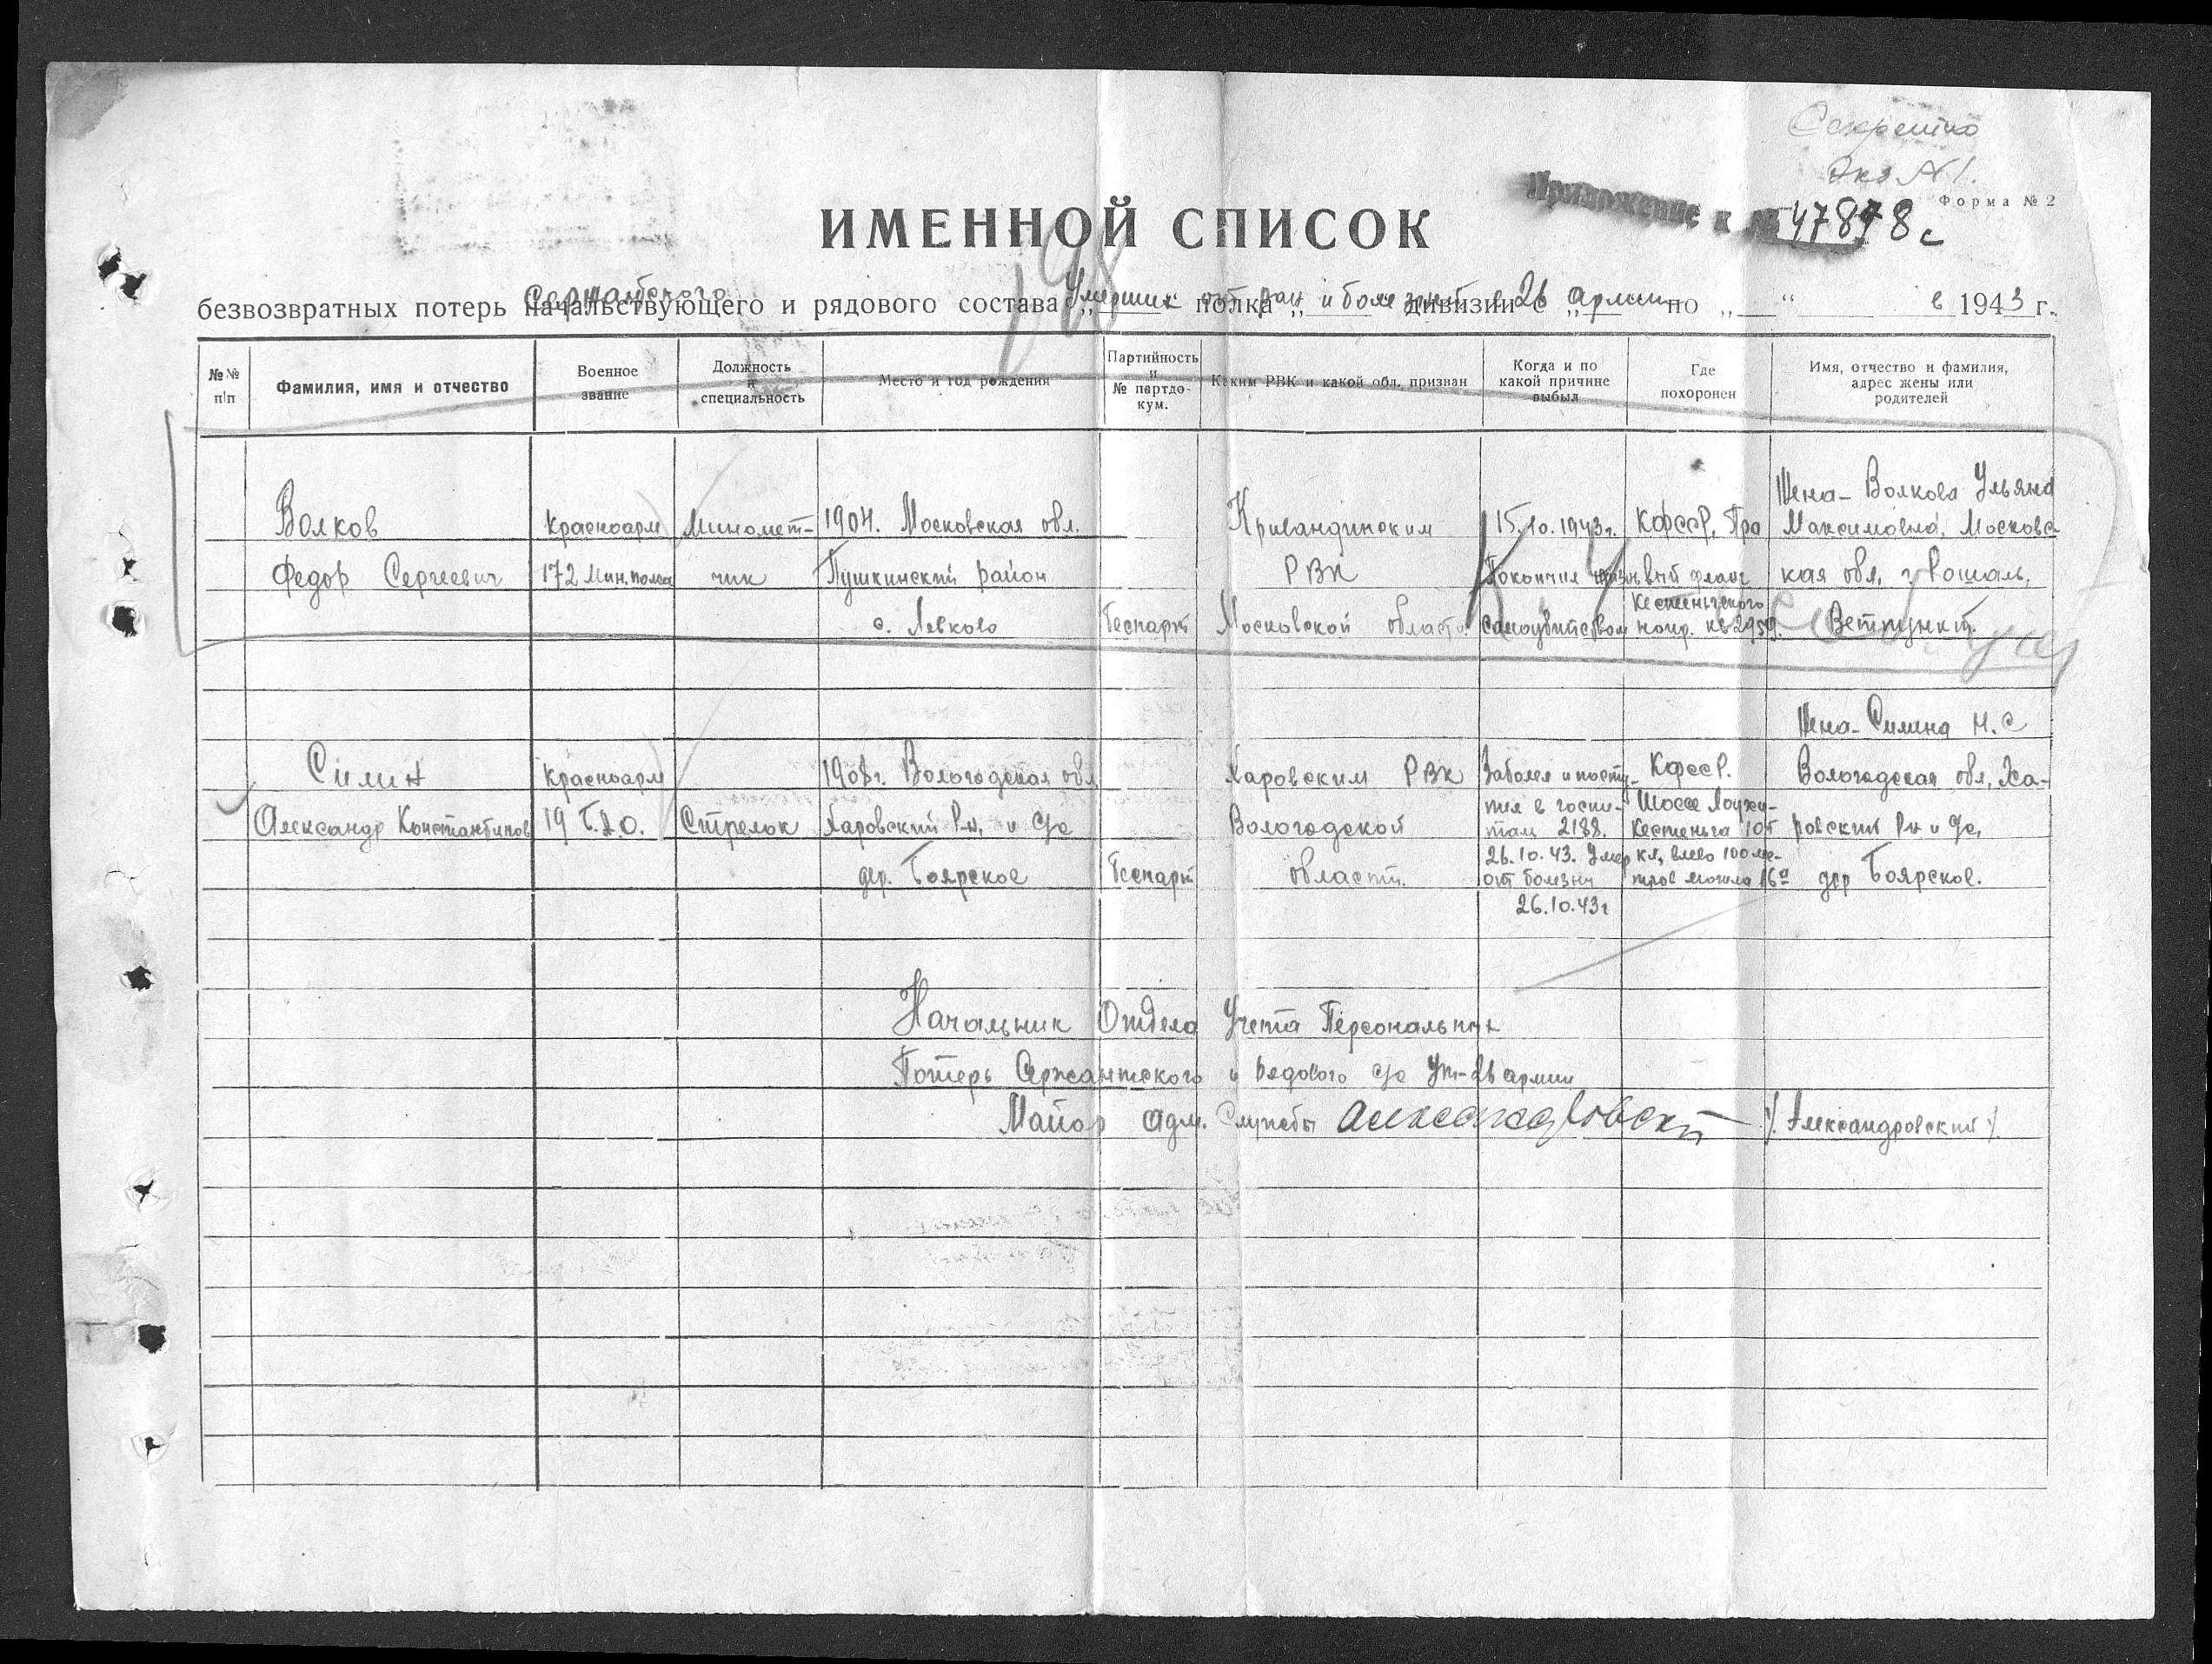 Секретно
Экз №1.
Форма № 2
Приложение к № 47878с
ИМЕННОЙ СПИСОК
198
Сержантского Умерших от ран и болезней 26 армии
безвозвратных потерь начальствующего и рядового состава „ полка „ дивизии с „ по „ “ в 1943 г.
№№ п/п
Фамилия, имя и отчество
Военное звание
Должность и специальность
Место и год рождения
Партийность и № партдо-кум.
Каким РВК и какой обл. призван
Когда и по какой причине выбыл
Где похоронен
Имя, отчество и фамилия, адрес жены или родителей
Жена - Волкова Ульяна
Волков Красноарм Миномет- 1904. Московская обл. Кривандинским 15.10.1943г. КФССР, Пра Максимовна, Московс
Федор Сергеевич 172 Мин.полка чик Пушкинский район РВК Покончил жизнь вый фланг кая обл, г. Рошаль,
с. Левково Беспарт Московской области. самоубийством Кестеньгского напр. кв 2959. Ветпункт.
Жена - Силина Н.С
Силин Красноарм 1908г. Вологодская обл Харовским РВК Заболел и посту- КФССР. Вологодская обл, Ха-
Александр Константинов 19 Б.Д.О. Стрелок Харовский р-н, и с/с Вологодской пил в госпи- Шоссе Лоухи-
таль 2188. Кестеньга 105 ровский рн и с/с,
26.10.43. Умер кл, влево 100 ме-
дер. Боярское Беспарт области. от болезни тров могила 16а дер Боярское.
26.10.43г
Начальник Отдела Учета Персональных
Потерь Сержантского и Рядового с/с Уп-26 армии
Майор Адм. Службы Александровский /Александровский/.